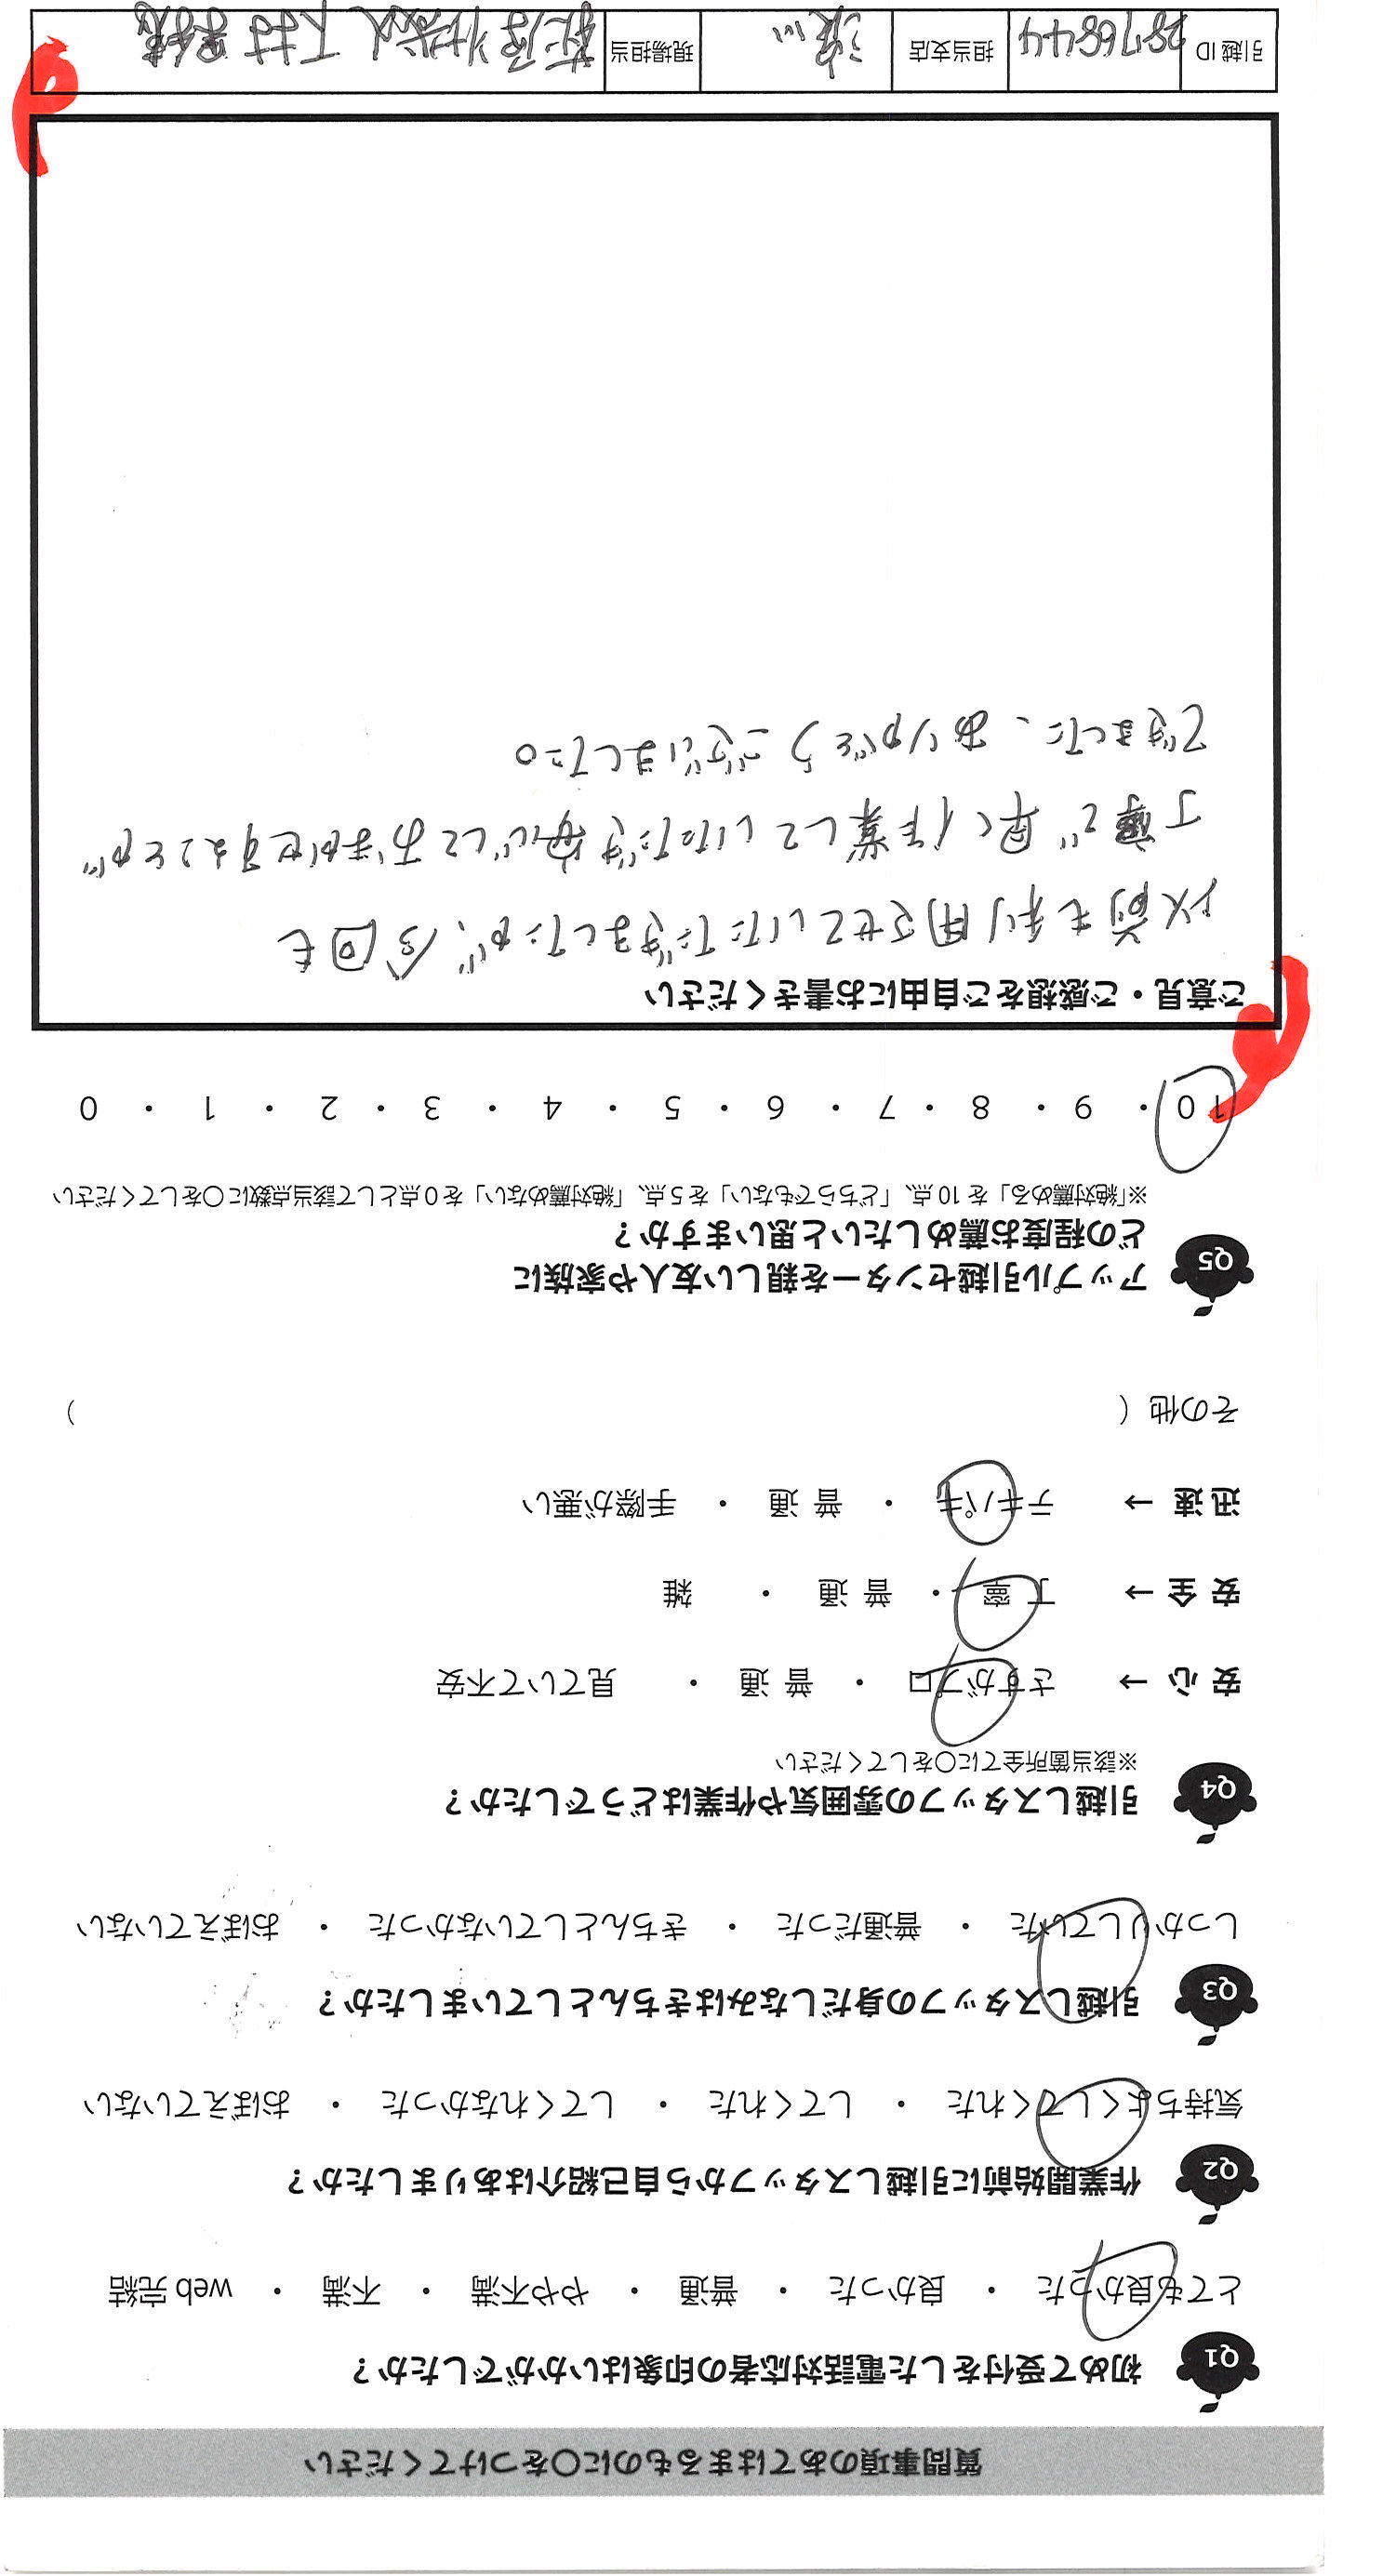 質問事項のあてはまるものに〇をつけてください
Q1 初めて受付をした電話対応者の印象はいかがでしたか?
とても良かった ・ 良かった ・ 普通 ・ やや不満 ・ 不満 ・ web 完結
Q2 作業開始前に引越しスタッフから自己紹介はありましたか?
気持ちよくしてくれた ・ してくれた ・ してくれなかった ・ おぼえていない
Q3 引越しスタッフの身だしなみはきちんとしていましたか?
しっかりしていた ・ 普通だった ・ きちんとしていなかった ・ おぼえていない
Q4 引越しスタッフの雰囲気や作業はどうでしたか?
※該当箇所全てに〇をしてください
安 心 → さすがプロ ・ 普 通 ・ 見ていて不安
安 全 → 丁 寧 ・ 普 通 ・ 雑
迅 速 → テキパキ ・ 普 通 ・ 手際が悪い
その他 ( )
Q5 アップル引越センターを親しい友人や家族に
どの程度お薦めしたいと思いますか?
※「絶対薦める」を 10 点、「どちらでもない」を 5 点、「絶対薦めない」を 0 点として該当点数に〇をしてください
10 ・ 9 ・ 8 ・ 7 ・ 6 ・ 5 ・ 4 ・ 3 ・ 2 ・ 1 ・ 0
ご意見・ご感想をご自由にお書きください
以前も利用させていただきましたが、今回も
丁寧で早く作業していただき安心しておまかせすることが
できました、ありがとうございました。
引越 ID 2876844 担当支店 現場担当 下村